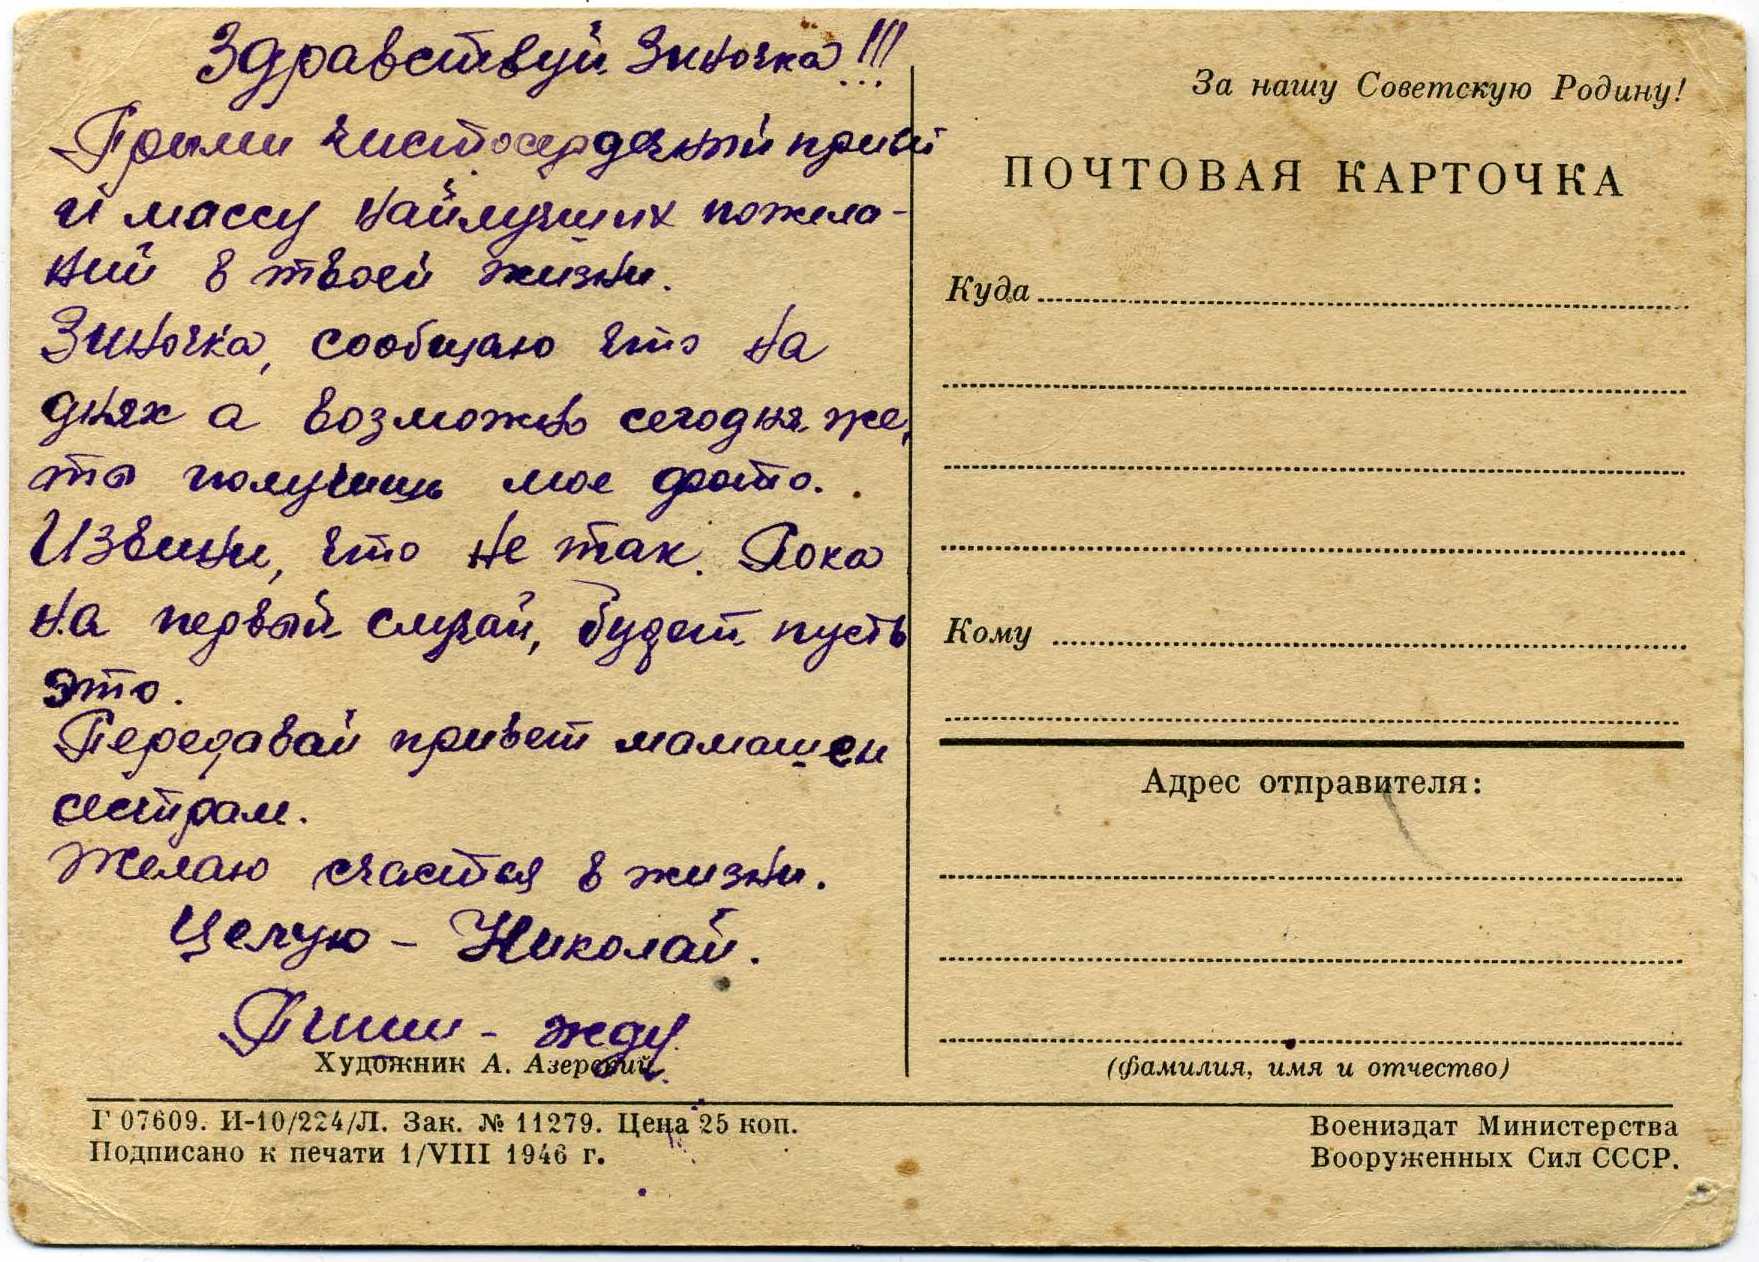 Здравствуй Зиночка!!!
Прими чистосердечный привет
и массу найлучших пожела-
ний в твоей жизни.
Зиночка, сообщаю что на
днях а возможно сегодня же,
ты получишь мое фото.
Извини, что не так. Пока
на первый случай, будет пусть
это.
Передавай привет мамаше и
сестрам.
Желаю счастья в жизни.
Целую - Николай.
Пиши - жду.
Художник А. Азерский
За нашу Советскую Родину!
ПОЧТОВАЯ КАРТОЧКА
Куда
Кому
Адрес отправителя:
(фамилия, имя и отчество)
Г 07609. И-10/224/Л. Зак. № 11279. Цена 25 коп.
Подписано к печати 1/VIII 1946 г.
Воениздат Министерства
Вооруженных Сил СССР.